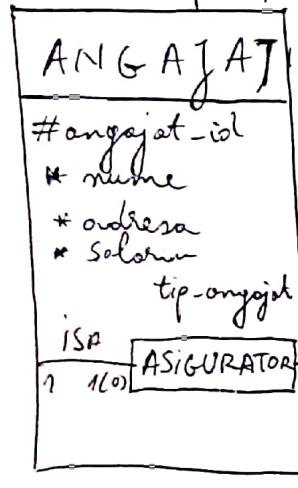 ANGAJAT
#angajat_id
* nume
* adresa
* salariu
tip-angajat
ISA
ASIGURATOR
1 1(0)